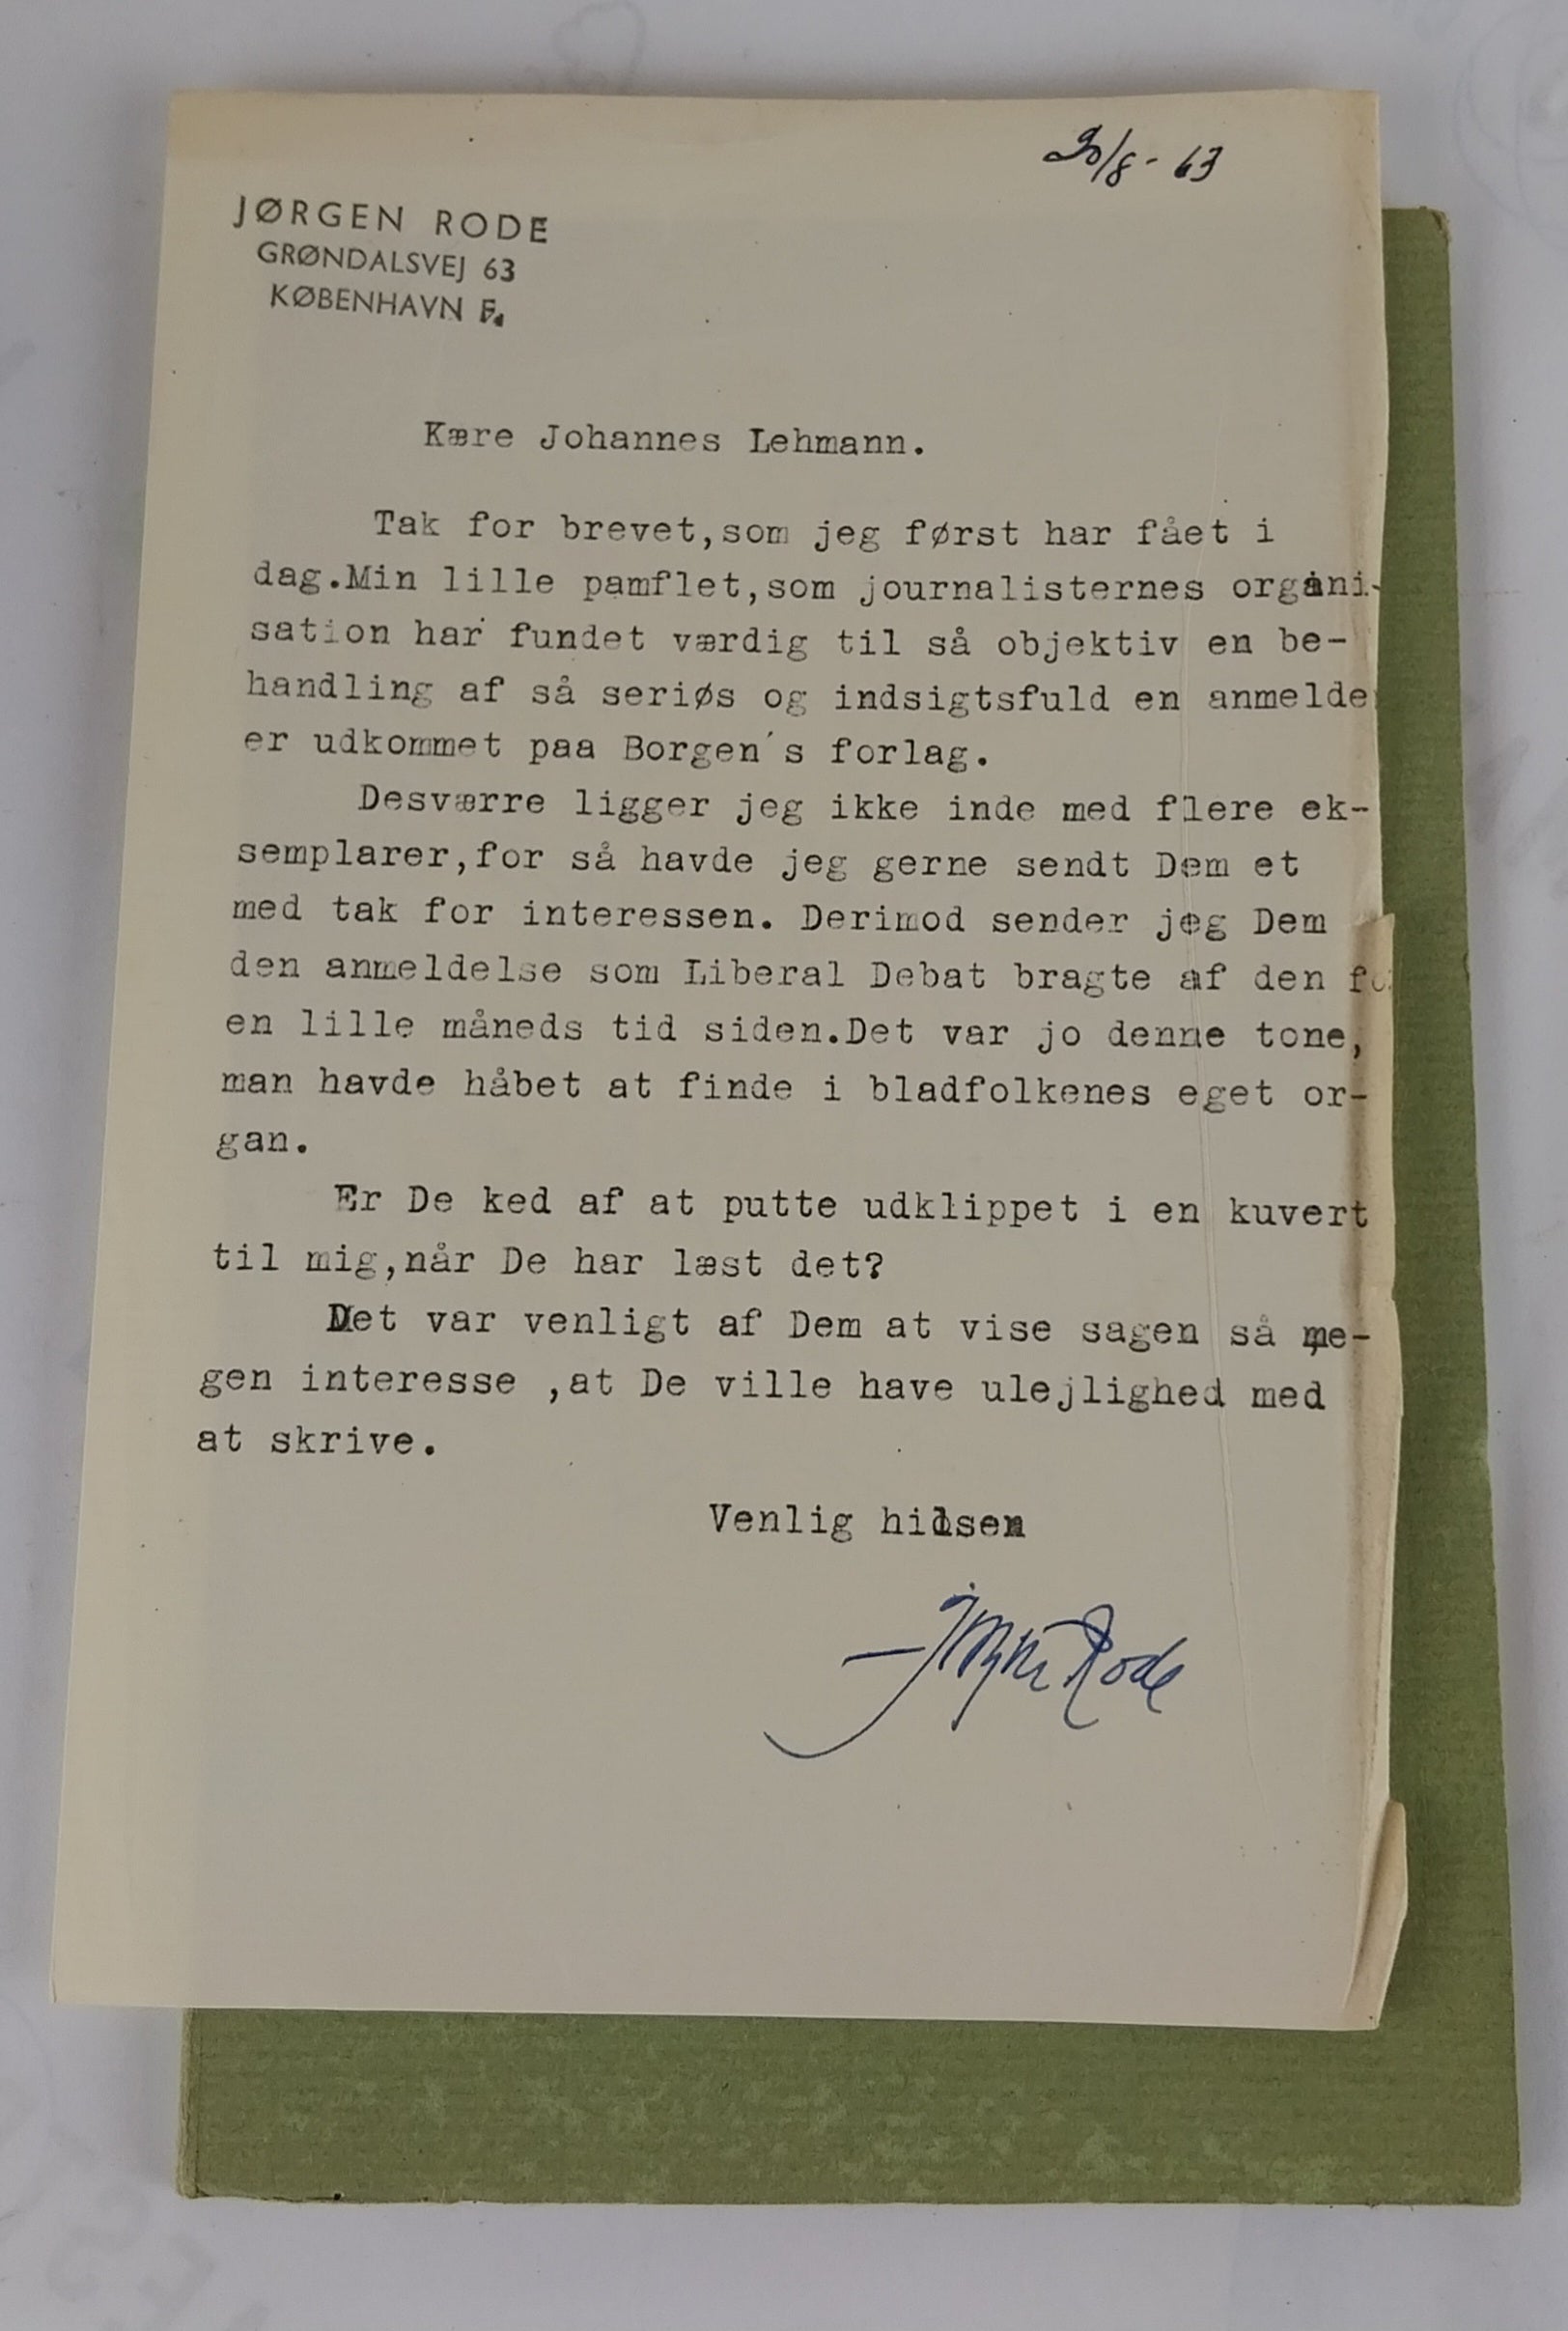 20/8 - 63
JØRGEN RODE
GRØNDALSVEJ 63
KØBENHAVN F.
Kære Johannes Lehmann.
Tak for brevet,som jeg først har fået i
dag.Min lille pamflet,som journalisternes organi-
sation har fundet værdig til så objektiv en be-
handling af så seriøs og indsigtsfuld en anmelder
er udkommet paa Borgen's forlag.
Desværre ligger jeg ikke inde med flere ek-
semplarer,for så havde jeg gerne sendt Dem et
med tak for interessen. Derimod sender jeg Dem
den anmeldelse som Liberal Debat bragte af den for
en lille måneds tid siden.Det var jo denne tone,
man havde håbet at finde i bladfolkenes eget or-
gan.
Er De ked af at putte udklippet i en kuvert
til mig,når De har læst det?
Det var venligt af Dem at vise sagen så me-
gen interesse ,at De ville have ulejlighed med
at skrive.
Venlig hilsen
Jørgen Rode